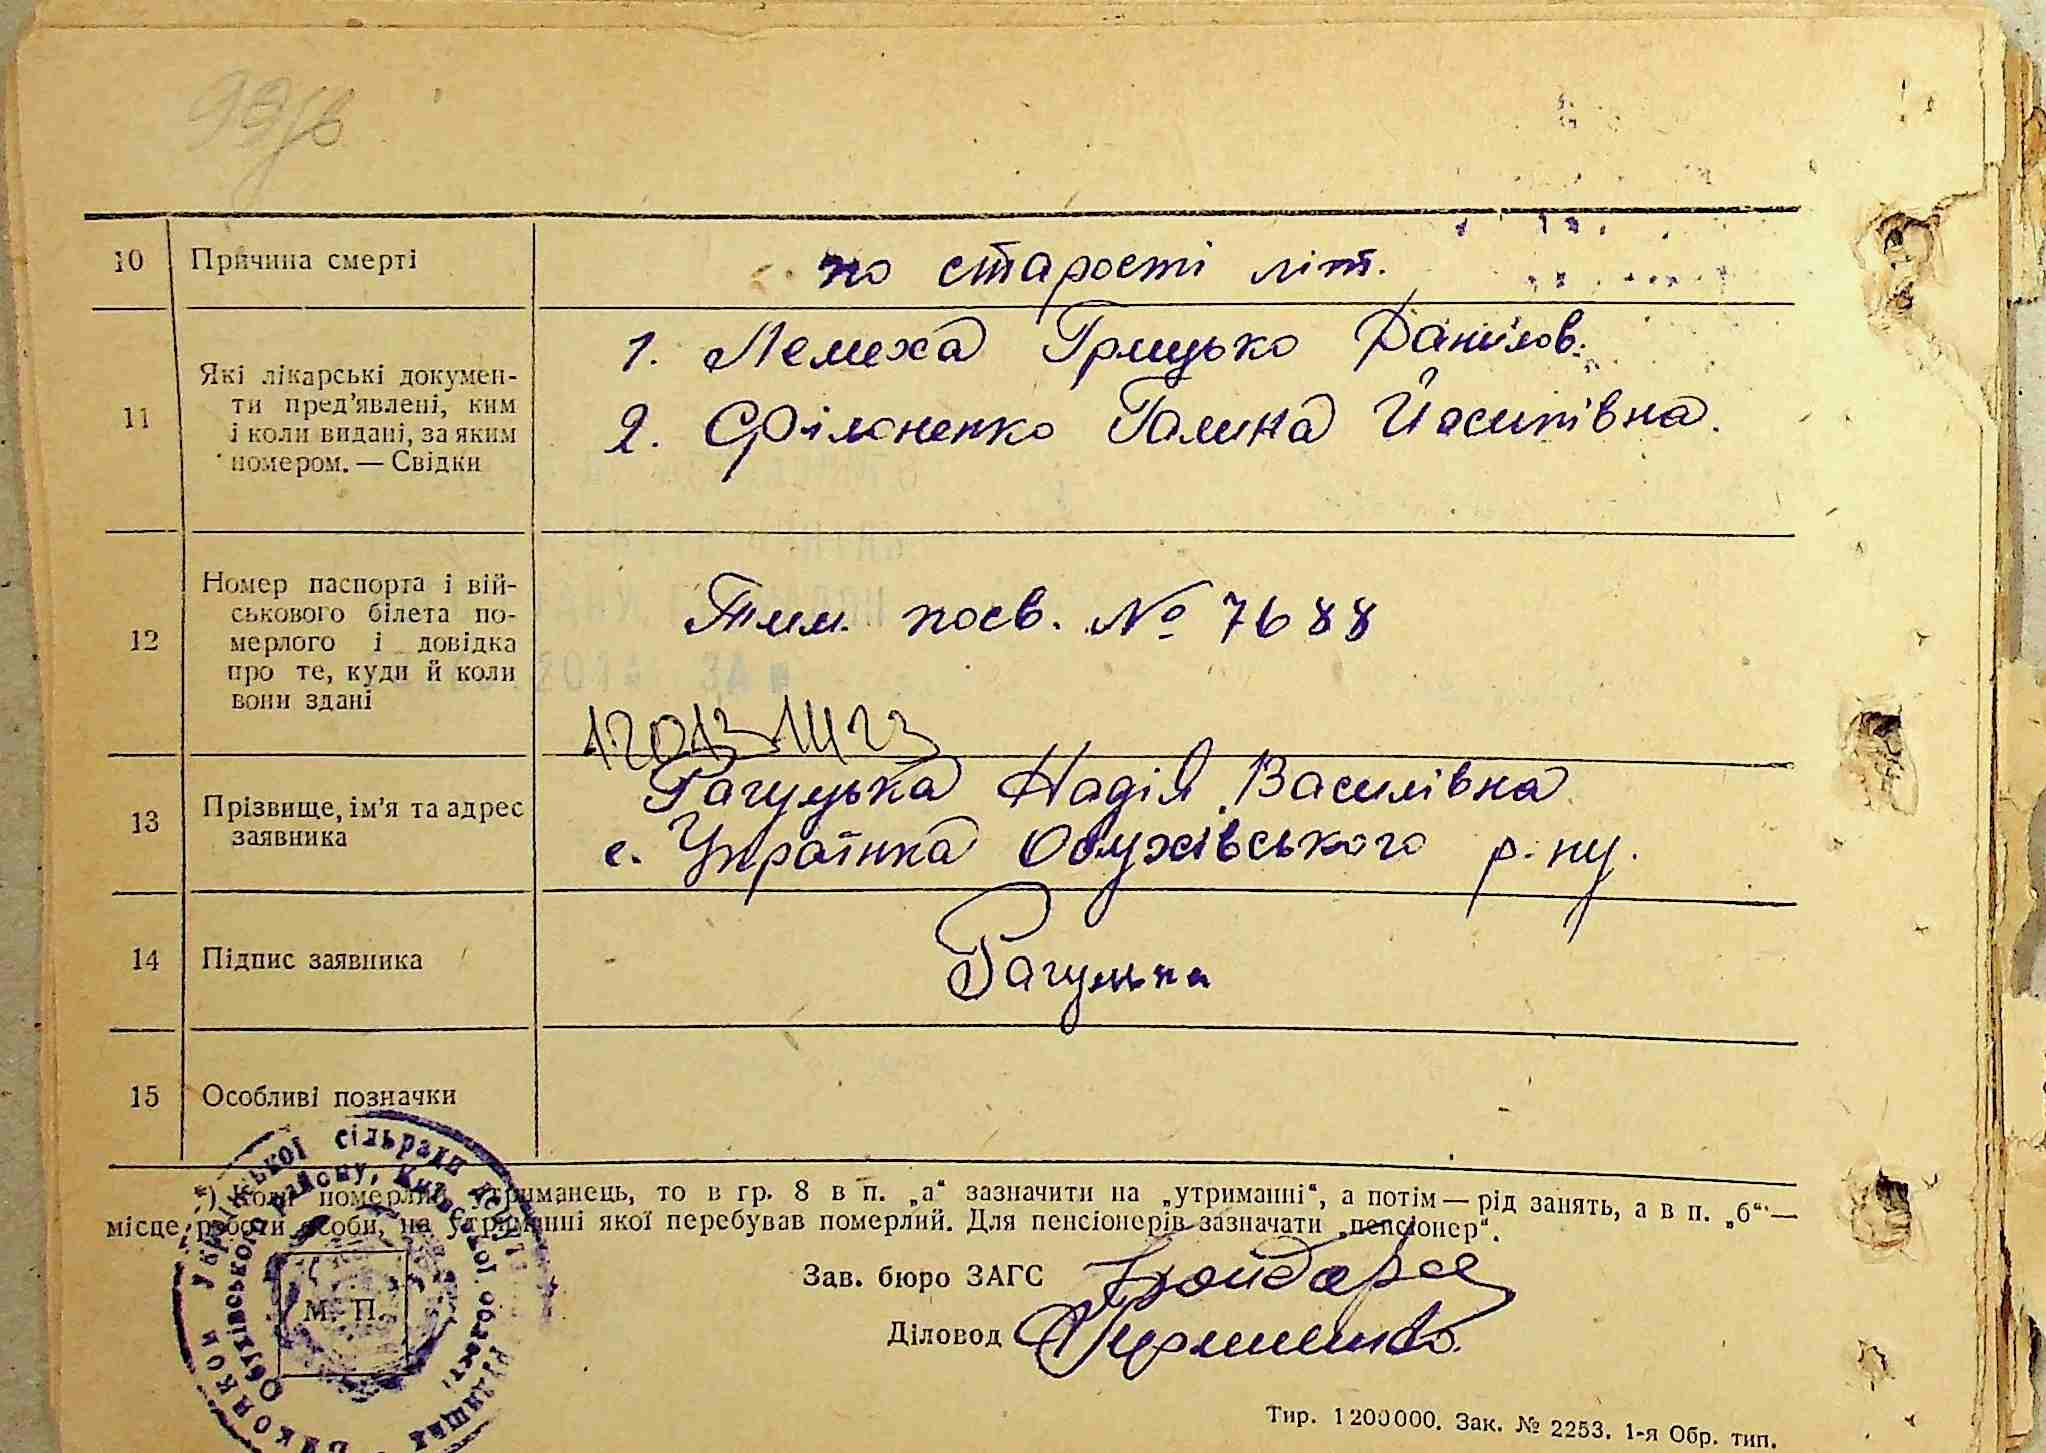 10 Причина смерті
по старості літ.
11 Які лікарські докумен-
ти пред'явлені, ким
і коли видані, за яким
номером. — Свідки
1. Лемеха Грицько Данилов.
2. Філоненко Галина Йосипівна.
12 Номер паспорта і вій-
ськового білета по-
мерлого і довідка
про те, куди й коли
вони здані
Тим. посв. № 7688
13 Прізвище, ім'я та адрес
заявника
Рагулька Надія Василівна
с. Українка Обухівського р-ну.
14 Підпис заявника
Рагулька
15 Особливі позначки
*) Коли померлий утриманець, то в гр. 8 в п. „а“ зазначити на „утриманні“, а потім — рід занять, а в п. „б“ —
місце роботи особи, на утриманні якої перебував померлий. Для пенсіонерів зазначати „пенсіонер“.
М. П.
Української сільради
Обухівського району, Київської області
Зав. бюро ЗАГС
Діловод
Тир. 1200000. Зак. № 2253. 1-я Обр. тип.